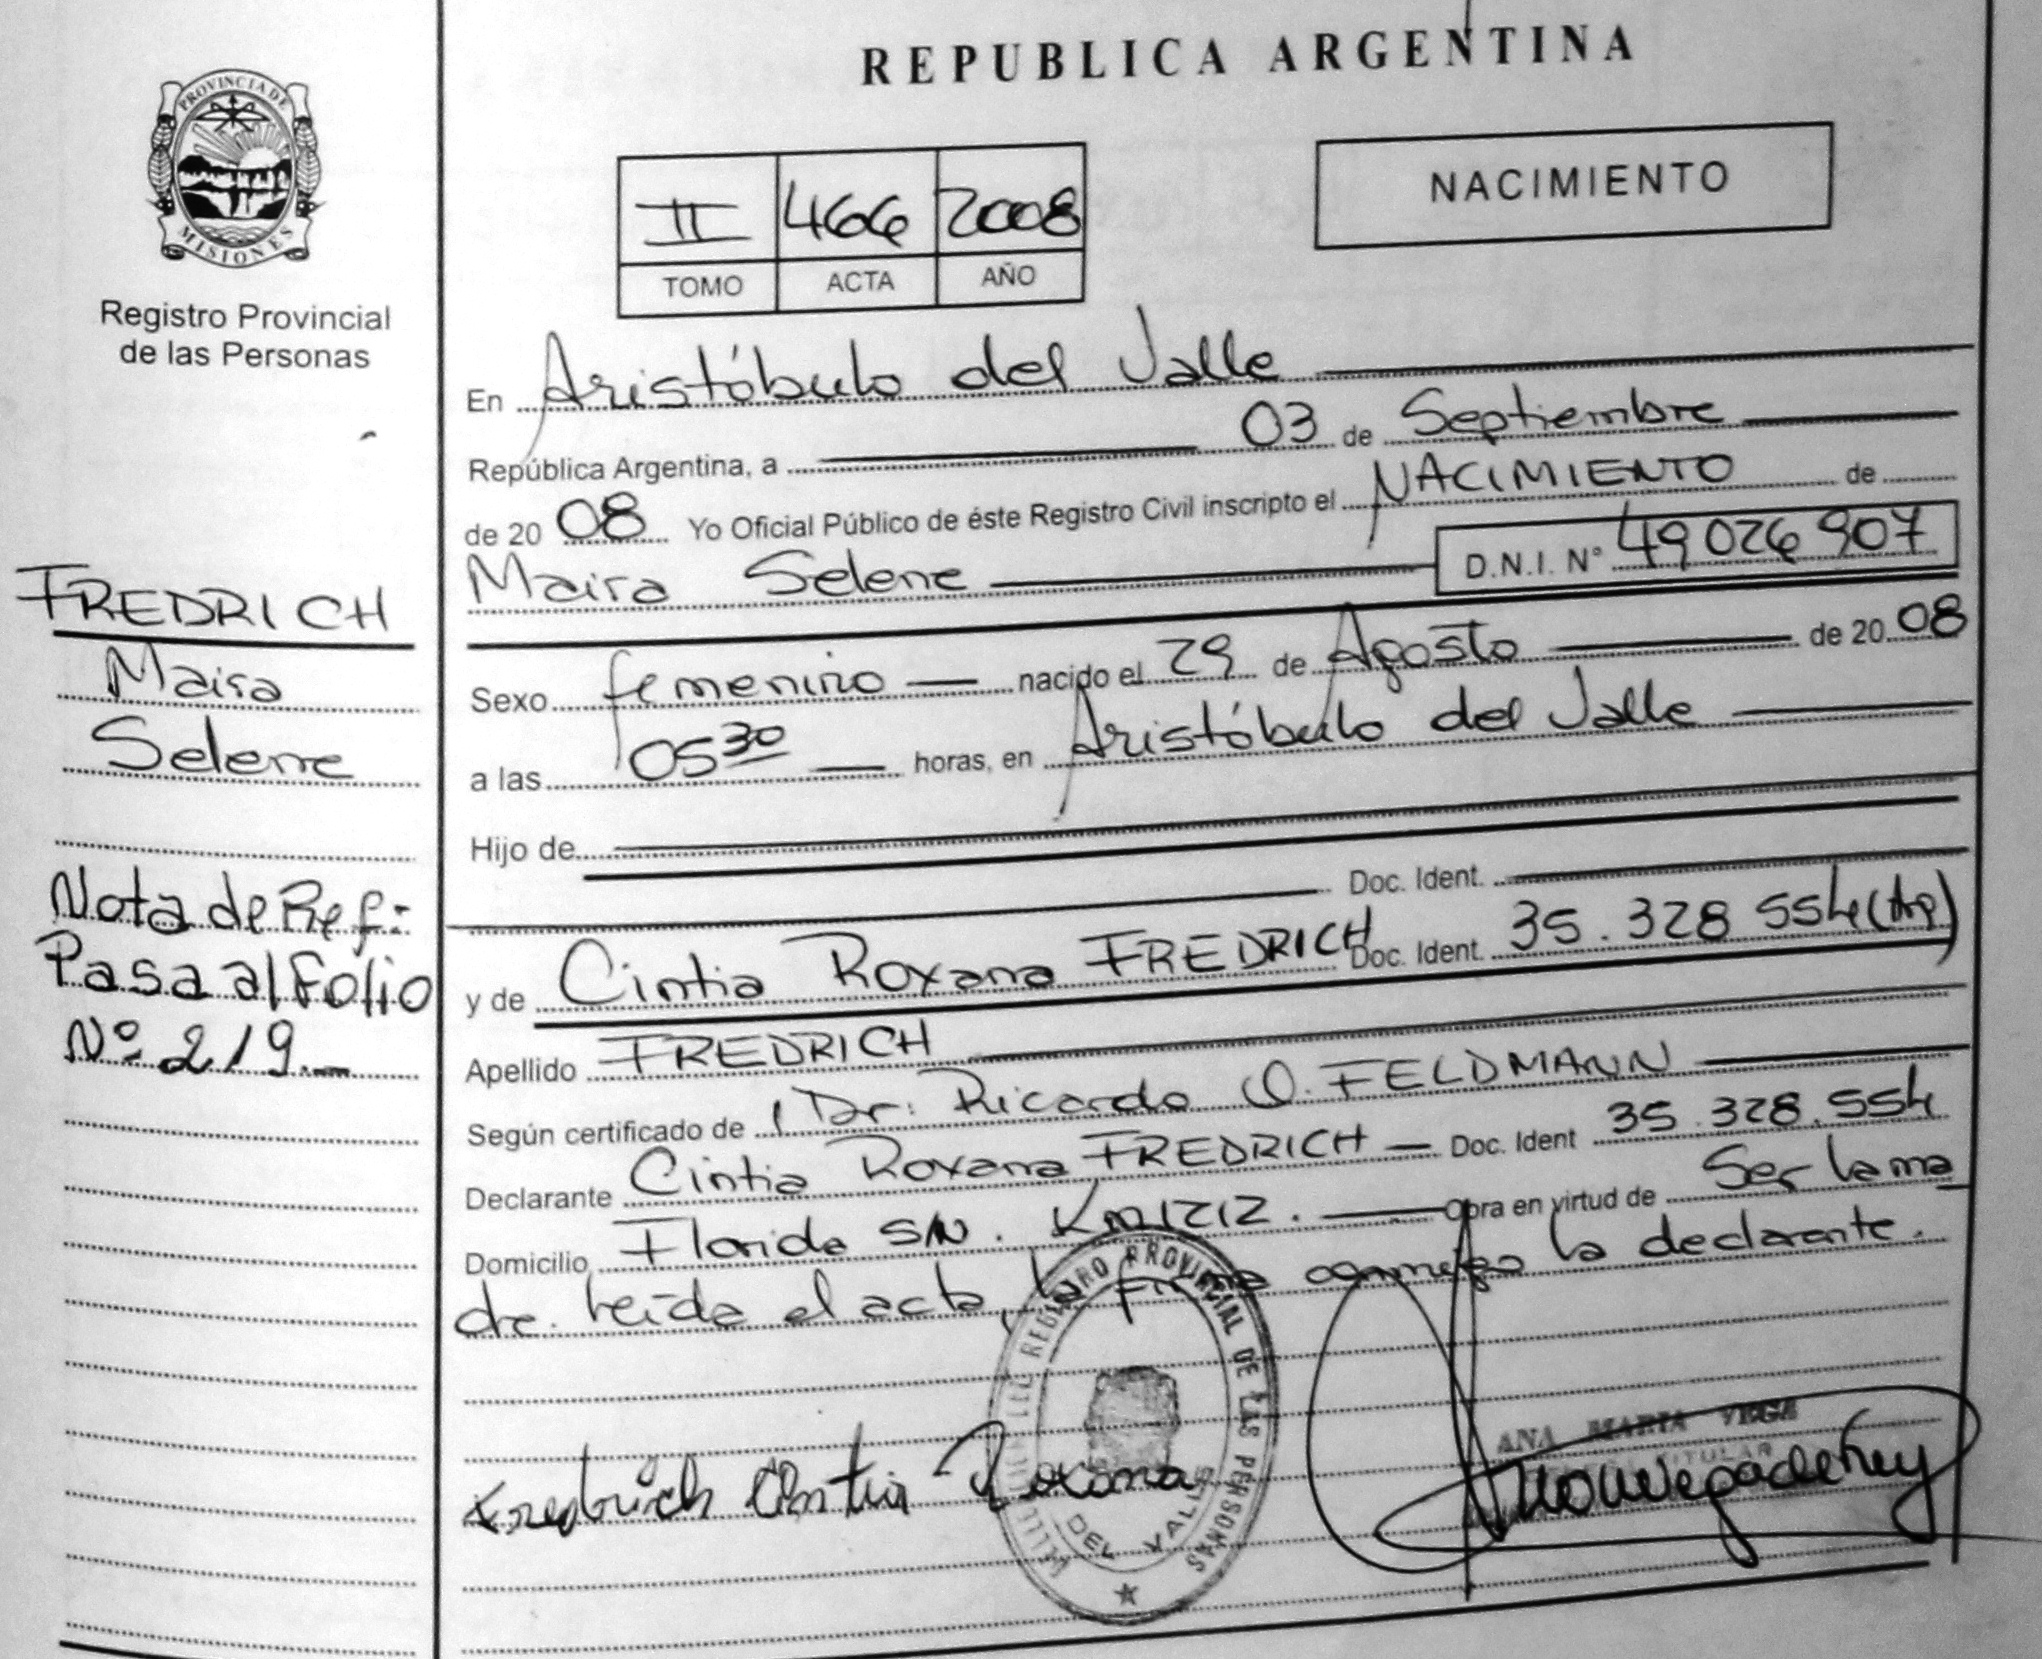 PROVINCIA DE
MISIONES
Registro Provincial
de las Personas
FREDRICH
Maira
Selene
Nota de Ref:
Pasa al Folio
Nº 219.-
REPUBLICA ARGENTINA
II 466 2008
TOMO ACTA AÑO
NACIMIENTO
En Aristóbulo del Valle
República Argentina, a 03 de Septiembre
de 20 08 Yo Oficial Público de éste Registro Civil inscripto el NACIMIENTO de
Maira Selene D.N.I. N° 49 026 907
Sexo femenino nacido el 29 de Agosto de 20 08
a las 05 30 horas, en Aristóbulo del Valle
Hijo de
Doc. Ident.
y de Cintia Roxana FREDRICH Doc. Ident. 35.328 554
Apellido FREDRICH
Según certificado de Dr: Ricardo O. FELDMANN
Declarante Cintia Roxana FREDRICH Doc. Ident 35.328.554
Domicilio Florida S/N. Km 1212. Obra en virtud de Ser la ma
dre. leída el acta, la firma conmigo la declarante.
REGISTRO PROVINCIAL DE LAS PERSONAS
DEL VALLE
Fredrich Cintia Roxana
ANA MARIA VEGA
TITULAR